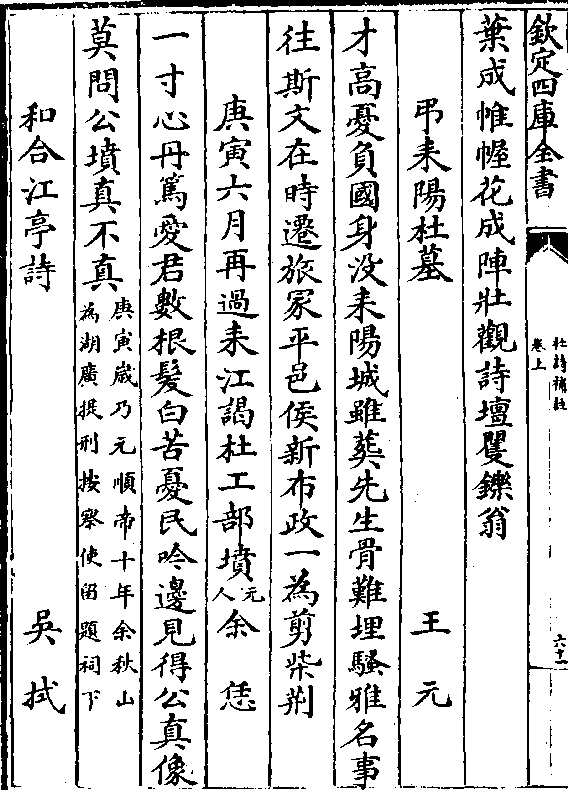 欽定四庫全書
杜詩補註
卷上
六十一
葉成帷幄花成陣壯觀詩壇矍鑠翁
弔耒陽杜墓 王元
才高憂負國身没耒陽城雖葬先生骨難埋騷雅名事
往斯文在時遷旅冢平邑侯新布政一為剪柴荆
庚寅六月再過耒江謁杜工部墳元人余恁
一寸心丹篤愛君數根髮白苦憂民吟邊見得公真像
莫問公墳真不真庚寅歲乃元順帝十年余秋山為湖廣提刑按察使留題祠下
和合江亭詩 吳拭